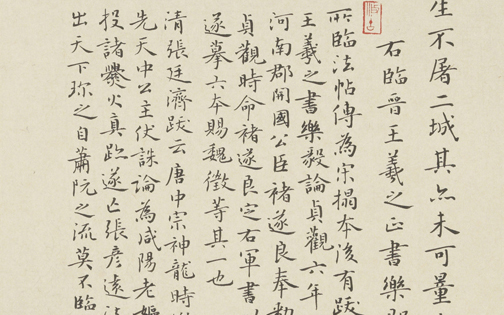 生不屠二城其亦未可量
右臨晉王羲之正書樂毅
所臨法帖傳為宋搨本後有跋
王羲之書樂毅論貞觀六年
河南郡開國公臣褚遂良奉勅
貞觀時命褚遂良定右軍書
遂摹六本賜魏徵等其一也
清張廷濟跋云唐中宗神龍時
先天中公主伏誅論為咸陽老嫗
投諸爨火真跡遂亡張彥遠法
出天下珍之自蕭阮之流莫不臨